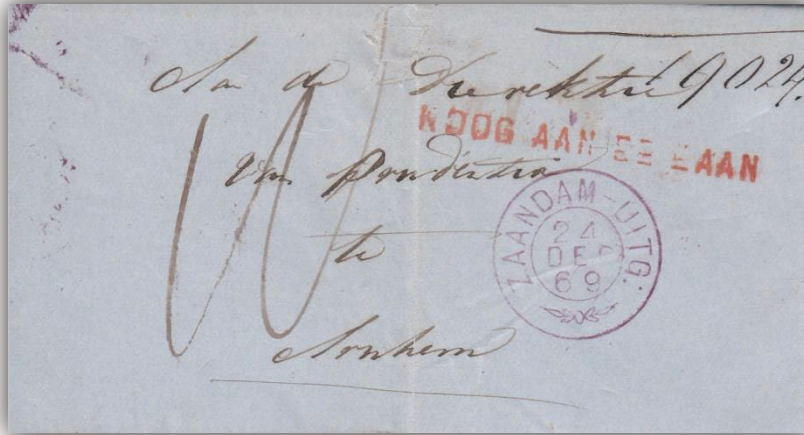 Aan de Direktie 19024.
KOOG AAN DE ZAAN
Van Prudentia
te
Arnhem
ZAANDAM-UITG:
24
DEC
69